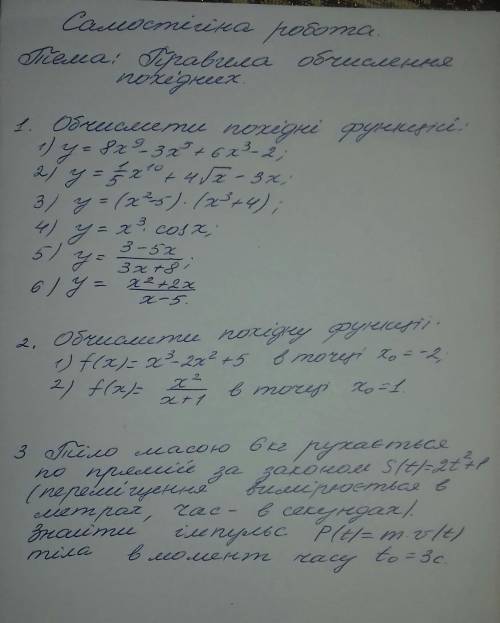 Самостійна робота.
Тема: Правила обчислення
похідних.
1. Обчислити похідні функцій:
1) y = 8x⁹ - 3x⁵ + 6x³ - 2;
2) y = 1/5 x¹⁰ + 4√x - 3x;
3) y = (x² - 5) · (x³ + 4);
4) y = x³ · cos x;
5) y = (3 - 5x)/(3x + 8);
6) y = (x² + 2x)/(x - 5).
2. Обчислити похідну функції:
1) f(x) = x³ - 2x² + 5 в точці x₀ = -2;
2) f(x) = x²/(x + 1) в точці x₀ = 1
3 Тіло масою 6 кг рухається
по прямій за законом S(t) = 2t² + 1
(переміщення вимірюється в
метрах, час - в секундах).
Знайти імпульс P(t) = m · v(t)
тіла в момент часу t₀ = 3с.